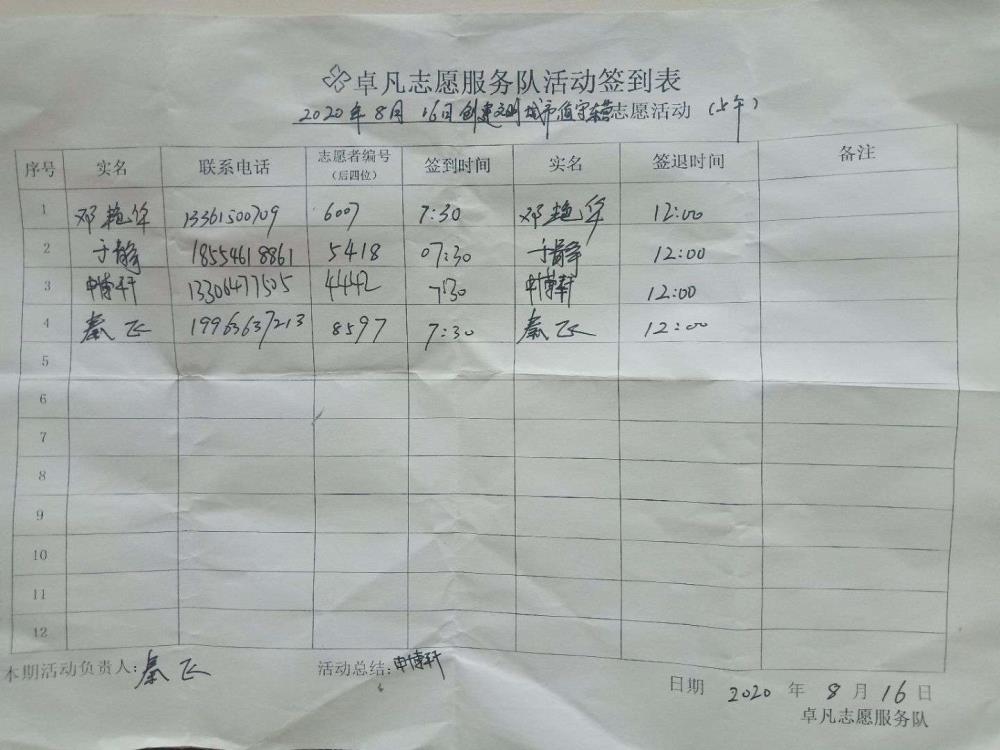 卓凡志愿服务队活动签到表
2020年8月16日创建文明城市值守东营志愿活动(上午)
序号 实名 联系电话 志愿者编号(后四位) 签到时间 实名 签退时间 备注
1 邓艳华 13361500709 6007 7:30 邓艳华 12:00
2 于静 18554618861 5418 07:30 于静 12:00
3 申博轩 13306477505 4442 7:30 申博轩 12:00
4 秦飞 19963637213 8597 7:30 秦飞 12:00
5
6
7
8
9
10
11
12
本期活动负责人:秦飞 活动总结:申博轩
日期 2020年8月16日
卓凡志愿服务队